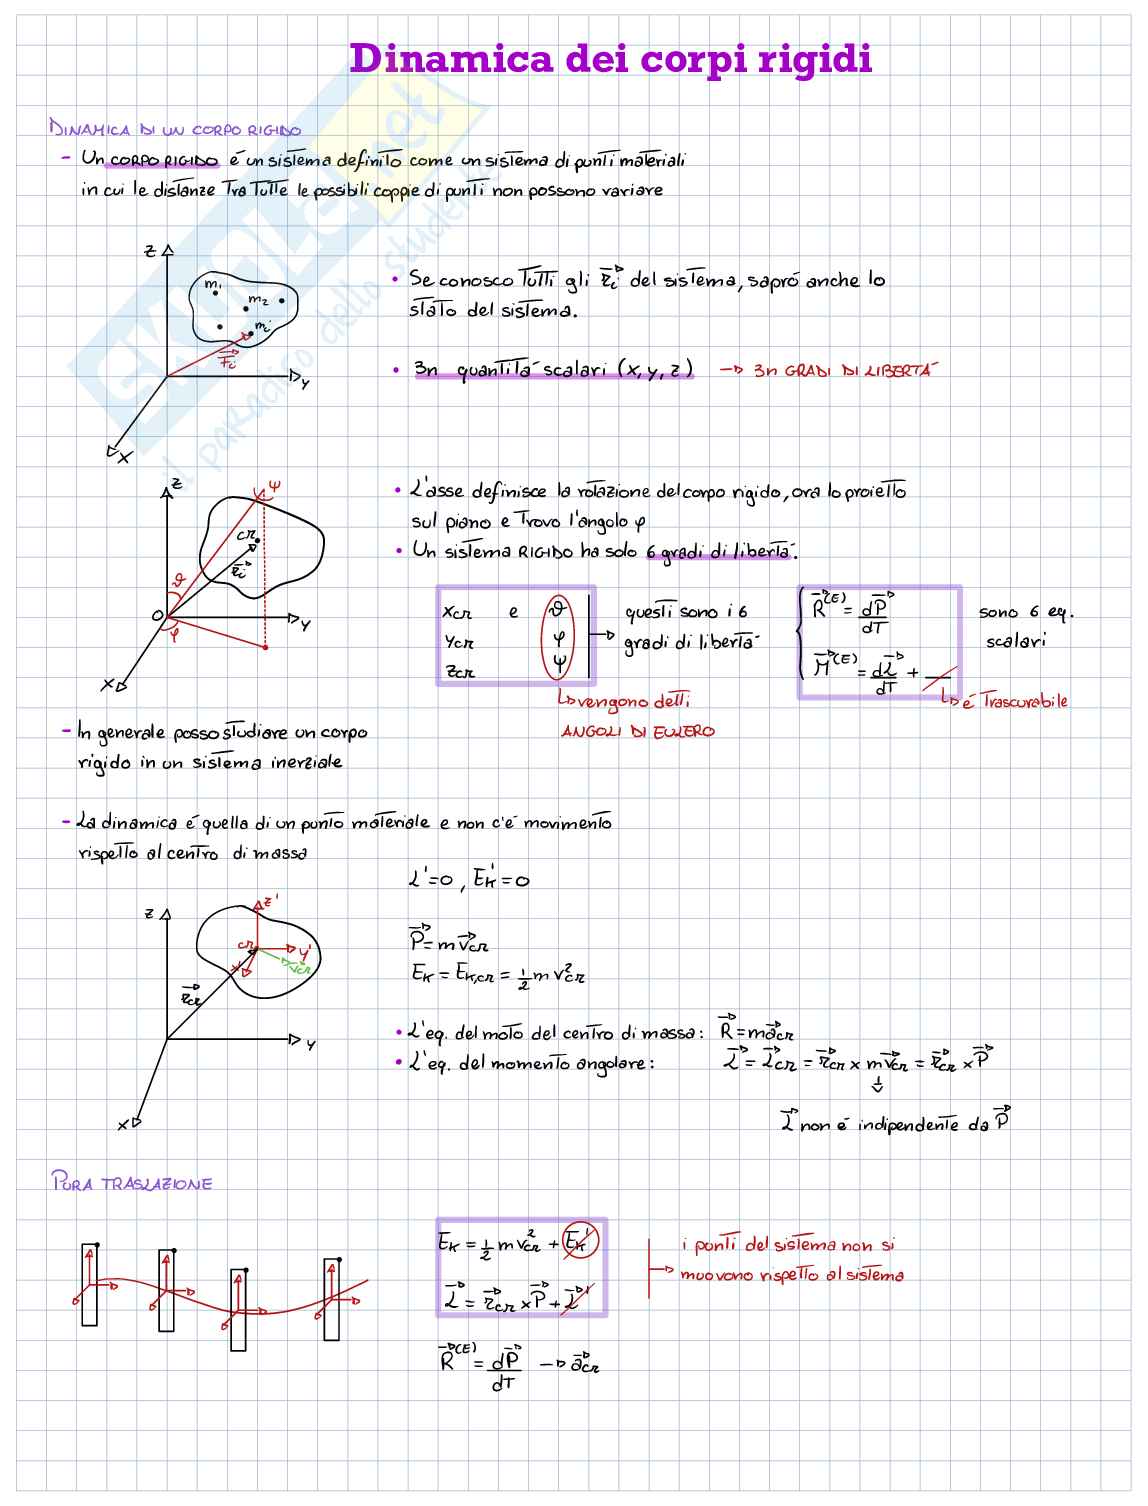 Dinamica dei corpi rigidi
DINAMICA DI UN CORPO RIGIDO
- Un CORPO RIGIDO é un sistema definito come un sistema di punti materiali
in cui le distanze tra tutte le possibili coppie di punti non possono variare
SKUOLA.net
il paradiso dello studente
z
m₁
m₂
mᵢ
r⃗ᵢ
y
x
• Se conosco tutti gli r⃗ᵢ del sistema, sapró anche lo
stato del sistema.
• 3n quantitá scalari (x, y, z) → 3n GRADI DI LIBERTÁ
z
ψ
cm
r⃗ᵢ
ϑ
O
φ
y
x
• L'asse definisce la rotazione del corpo rigido, ora lo proietto
sul piano e trovo l'angolo φ
• Un sistema RIGIDO ha solo 6 gradi di libertá.
xcm e ϑ
ycm φ
zcm ψ
→ questi sono i 6
gradi di libertá
↳ vengono detti
ANGOLI DI EULERO
R⃗⁽ᴱ⁾ = dP⃗/dt
M⃗⁽ᴱ⁾ = dL⃗/dt + __
sono 6 eq.
scalari
↳ é trascurabile
- In generale posso studiare un corpo
rigido in un sistema inerziale
- La dinamica é quella di un punto materiale e non c'é movimento
rispetto al centro di massa
L'=0 , EK'=0
z
z'
cm
y'
x'
v⃗cm
r⃗cm
y
x
P⃗ = m v⃗cm
EK = EK,cm = 1/2 m v²cm
• L'eq. del moto del centro di massa: R⃗ = m a⃗cm
• L'eq. del momento angolare: L⃗ = L⃗cm = r⃗cm × m v⃗cm = r⃗cm × P⃗
↓
L⃗ non é indipendente da P⃗
PURA TRASLAZIONE
EK = 1/2 m v²cm + EK'
L⃗ = r⃗cm × P⃗ + L⃗'
→ i punti del sistema non si
muovono rispetto al sistema
R⃗⁽ᴱ⁾ = dP⃗/dt → a⃗cm